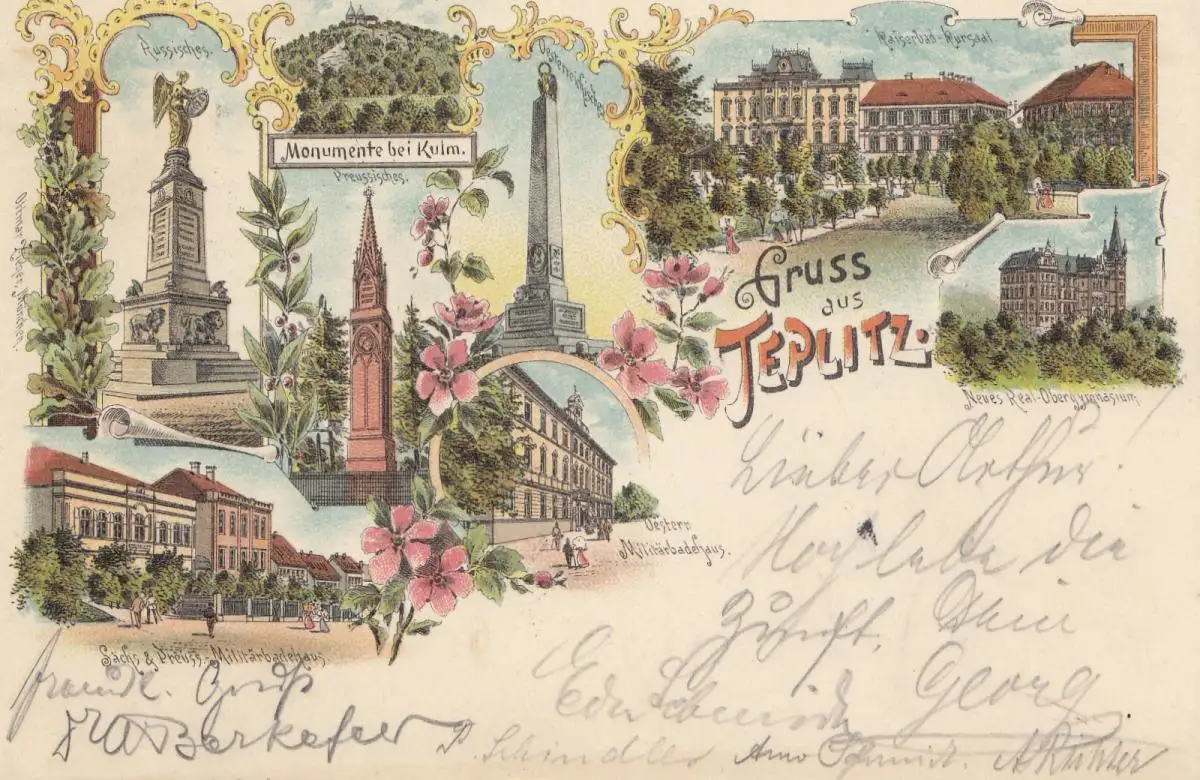 Russisches.
Monumente bei Kulm.
Preussisches.
Oesterreichisches
Kaiserbad-Kursaal
Gruss
aus
TEPLITZ.
Neues Real-Obergymnasium
Oesterr.
Militärbadehaus.
Sächs & Preuss.-Militärbadehaus
Ottmar Zieher, München.
Lieber Arthur!
Hoch lebe die
Zunft. Dein
Georg
freundl. Gruß
Berkefeld
Edu Schmidt
P. Schindler Arno Schmidt. A. Richter